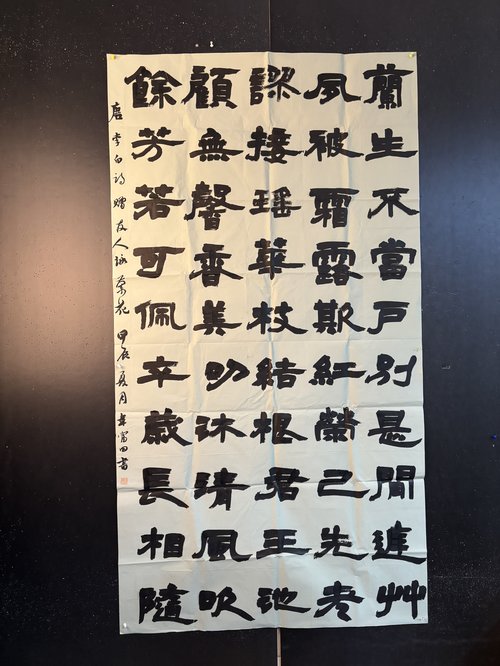 蘭生不當戶別是閒庭艸
夙被霜露欺紅榮已先老
謬接瑶華枝結根君王池
顧無馨香美叨沐清風吹
餘芳若可佩卒歲長相隨
唐李白詩贈友人詠蘭花 甲辰夏月